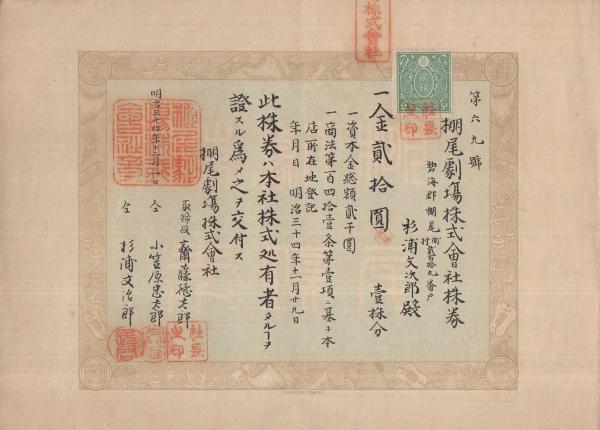 株式會社
第六九號
棚尾劇塲株式會社株券
碧海郡棚尾町村貳百拾九番戸
杉浦文次郎殿
一金貳拾圓 壹株分
一資本金総額貳千圓
一商法第百四拾壹条第壹項ニ基キ本
店所在地登記
年月日 明治三十四年十一月廿九日
此株券ハ本社株式処有者タルヿヲ
證スル為メ之ヲ交付ス
棚尾劇塲株式會社
取締役 齋藤徳太郎
仝 小笠原忠太郎
仝 杉浦文治郎
明治三十四年十二月一日
社長之印
社長之印